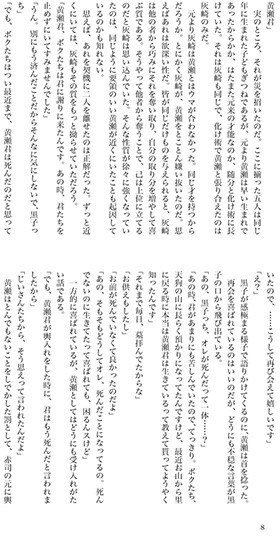 黄瀬君」
　実のところ、それが災を招いたのだ。ここに揃った五人は同じ
年に生まれた子どもぞろいであるが、元より黄瀬は早い生まれ
であったからか、はたまた元来の才能なのか、随分と化け術に長
けていた。それは灰崎も同じで、化け術で黄瀬と張り合えたのは
灰崎のみだ。
　元より灰崎は黄瀬とはウマが合わなかった。同じ才を持つから
だろうか、とにかく灰崎が、黄瀬をことごとく嫌い抜いたのだ。思
えばあれは欲深い性だ。皆が同じだけのものを与えられると、灰崎
は他の者から巧みにそれを奪い取り、自分の取り分を増やして喜
ぶ質である。そうやって他者から奪うことで、己は上位に立てる
のだと灰崎は思い違っていた。そんな性質が徐々に強くなってい
ったのには、同じように要領のいい黄瀬が近くにいたことも起因して
いるのかも知れない。
　思えば、あれを契機に二人を離せたのは正解だった。ずっと近
くにいては、灰崎もその質をもっと拗らせていただろう。
「黄瀬君、ボクたちは君に謝りに来たんです。あの時、君たちを
止めずにいてすみませんでした」
「ううん、別にもう済んだことだからそんなに気にしないで、黒子っ
ち」
「でも、ボクたちはつい最近まで、黄瀬君は死んだのだと思って
いたので、……こうして再び会えて嬉しいです」
「え？」
　黒子が感極まる様子で語りかけてくるのに、黄瀬は首を捻った。
再会を喜ばれているのはいいのだが、どうにも不穏な言葉が黒
子の口から飛び出ている。
「あの、黒子っち、オレが死んだって一体……？」
「あの時、君があまりにも苦しんでいたので、てっきり。ボクたち、
天狗の山に長らく預かりになってたんですけど、最近お山から里
に戻る時に本当は黄瀬君は生きているって教えて貰ってようやく
知ったんです」
「それまで毎日、墓拝んでたからな」
「お供えもしたし」
「お前が死んでなくて良かったのだよ」
「あの、そもそもどうしてオレ、死んだことになってるの。死ん
でないのに生きてたって喜ばれても、困るんスけど」
　一方的に喜ばれているが、黄瀬としてはどうにも受け入れがた
い話である。
「でも、黄瀬君が輿入れをした時に、君はもう死んだと言われま
したから」
「じいさんたちから、そう思えって言われたんだよ」
　黄瀬はとんでもないことをしでかした罰として、赤司の元に輿
8